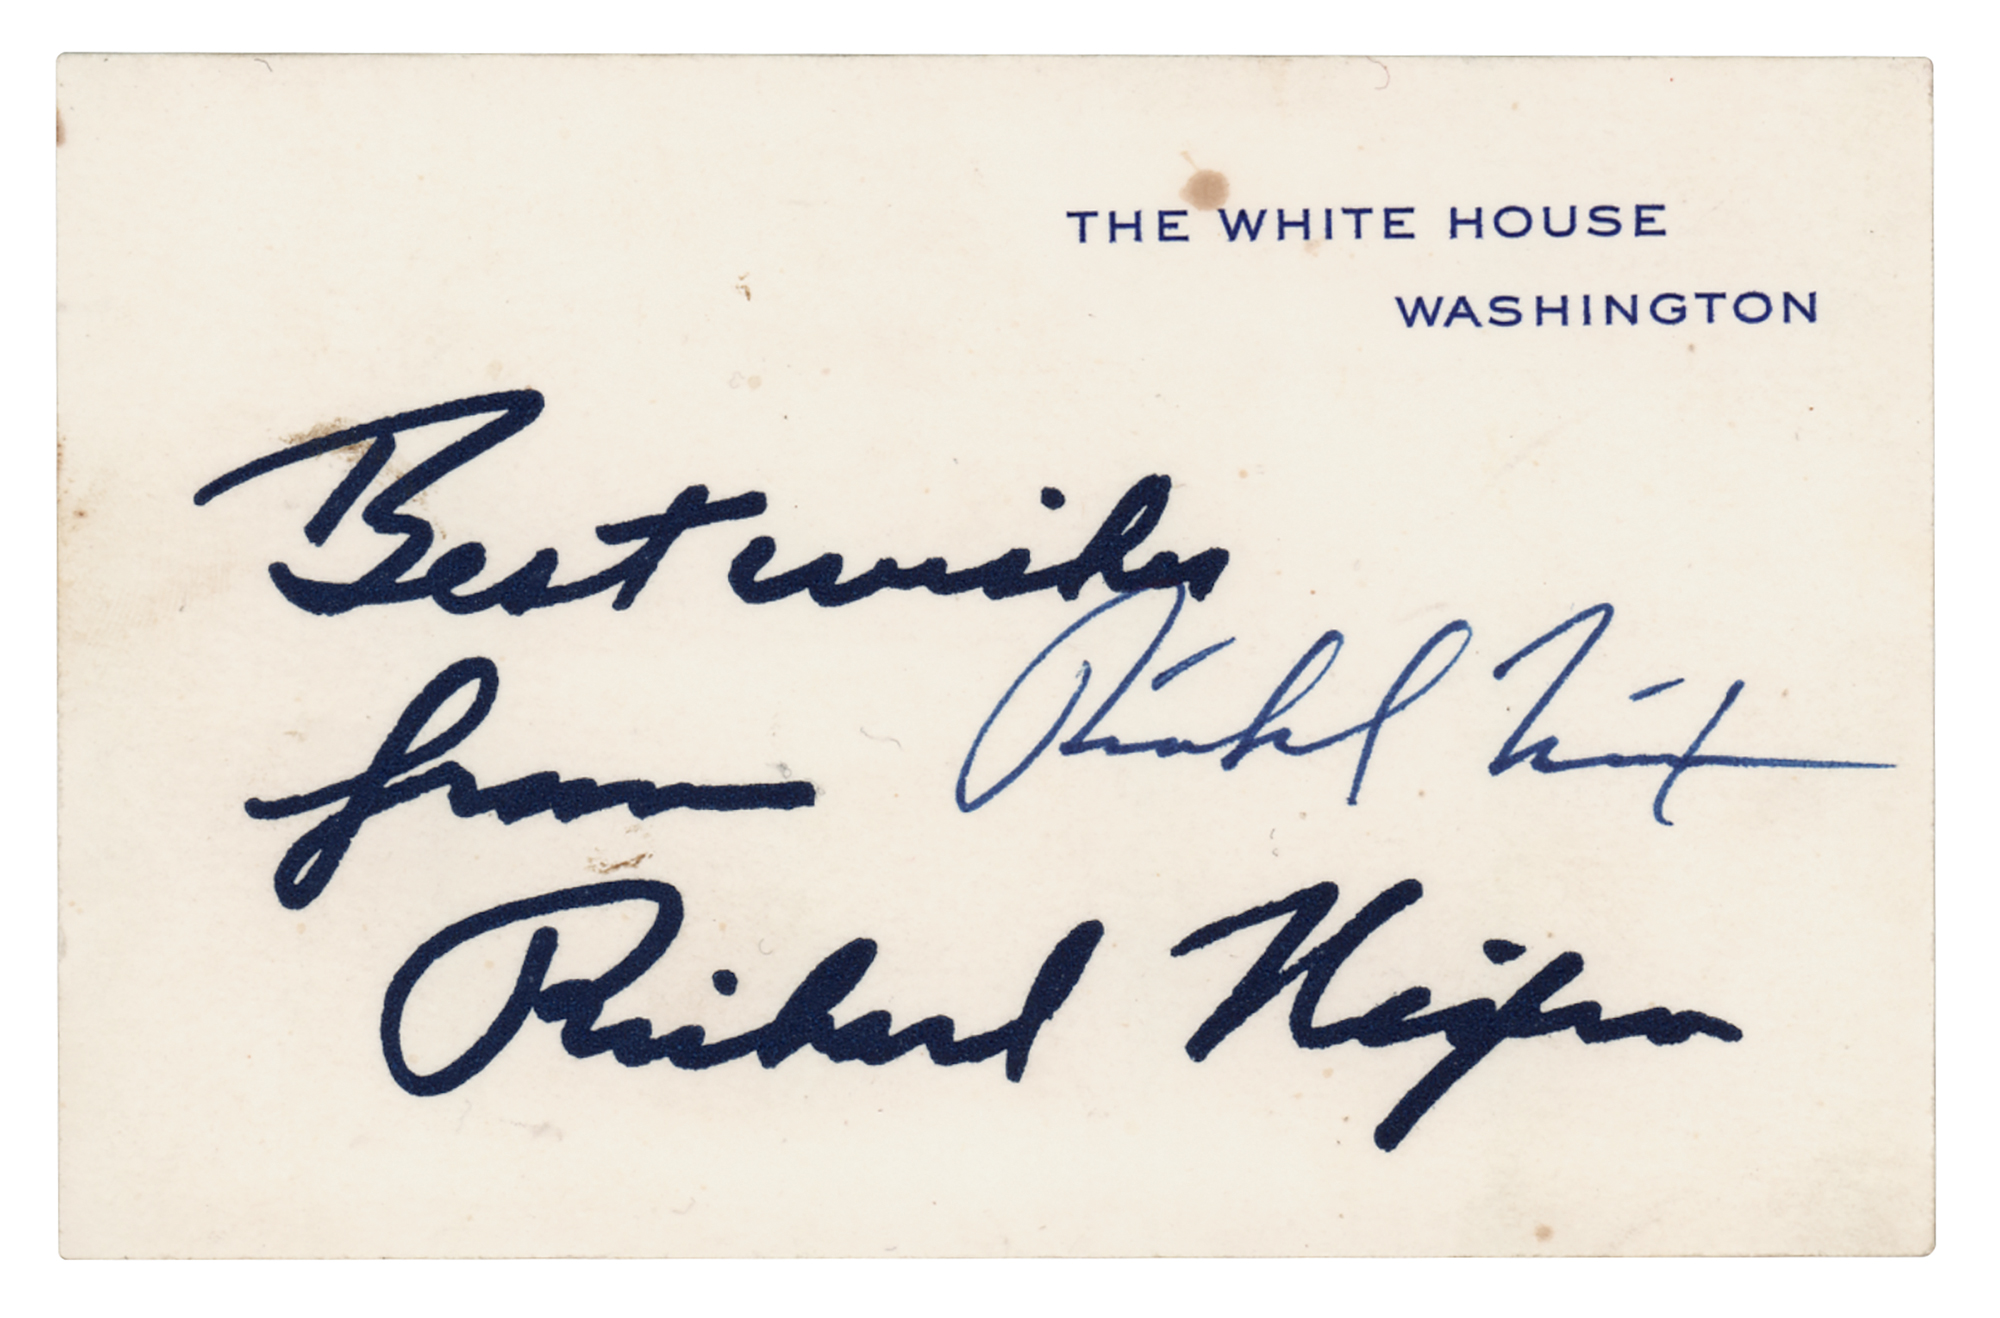 THE WHITE HOUSE
WASHINGTON
Best wishes
Richard Nixon
from
Richard Nixon